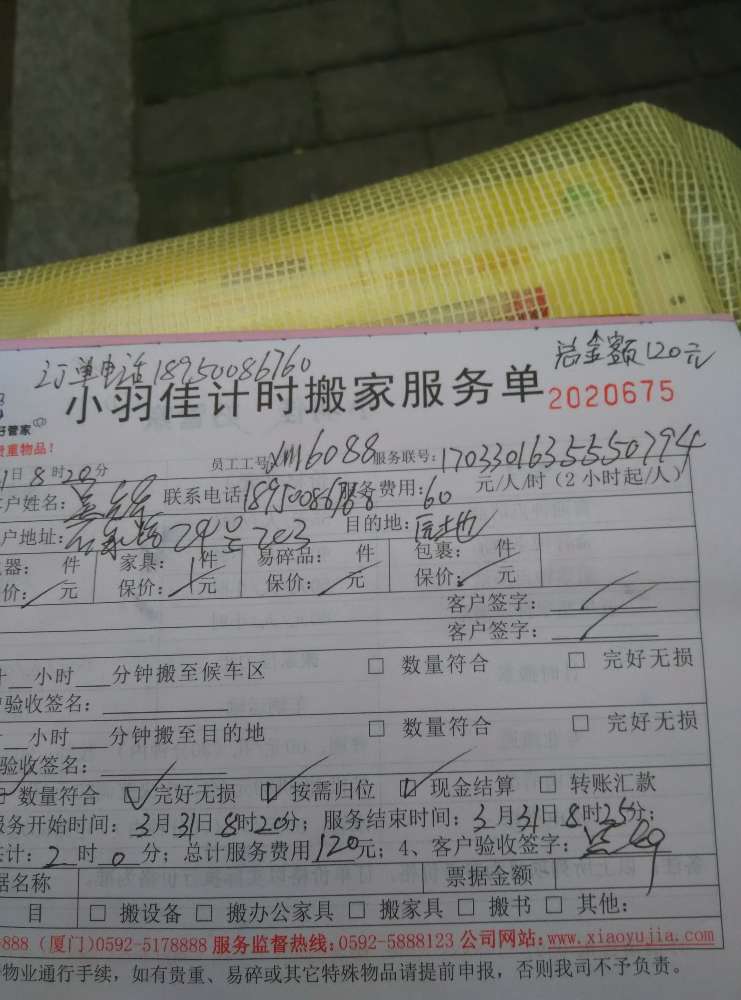 订单电话18950086760
总金额120元
小羽佳计时搬家服务单 2020675
好管家
贵重物品!
1日8时20分 员工工号XM16088服务联号:17033016355550794
客户姓名: 联系电话:18950086760服务费用:60元/人/时(2小时起/人)
户地址: 24号203 目的地:
器: 件 家具: 1件 易碎品: 件 包裹: 件
价: 元 保价: 元 保价: 元 保价: 元
客户签字:
客户签字:
计 小时 分钟搬至候车区 □ 数量符合 □ 完好无损
户验收签名:
计 小时 分钟搬至目的地 □ 数量符合 □ 完好无损
验收签名:
数量符合 ☑ 完好无损 ☑ 按需归位 ☑ 现金结算 □ 转账汇款
服务开始时间: 3月31日8时20分; 服务结束时间: 3月31日8时25分;
共计: 2时0分; 总计服务费用120元; 4、客户验收签字:
据名称 票据金额
目 □ 搬设备 □ 搬办公家具 □ 搬家具 □ 搬书 □ 其他:
888 (厦门)0592-5178888 服务监督热线:0592-5888123 公司网站:www.xiaoyujia.com
物业通行手续, 如有贵重、易碎或其它特殊物品请提前申报, 否则我司不予负责。